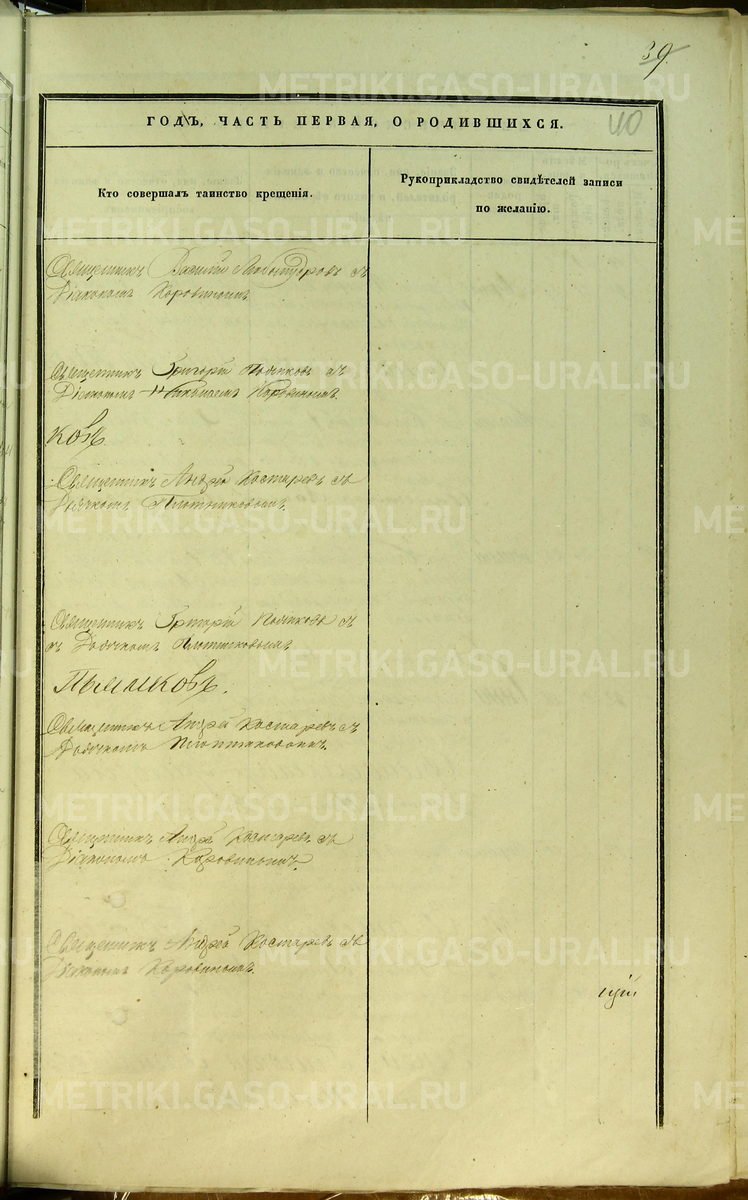 39
40
ГОДЪ, ЧАСТЬ ПЕРВАЯ, О РОДИВШИХСЯ.
Кто совершалъ таинство крещенія.
Рукоприкладство свидѣтелей записи
по желанію.
Священникъ Василій съ
Діакономъ Коровинымъ
Священникъ Григорій съ
Діакономъ Коровинымъ
ковъ
Священникъ Андрей Костаревъ съ
Дьячкомъ Плотниковымъ
Священникъ Григорій съ
Плотниковымъ
Священникъ Андрей Костаревъ съ
Плотниковымъ
Священникъ Андрей Костаревъ съ
Діакономъ Коровинымъ
Священникъ Андрей Костаревъ съ
Діакономъ Коровинымъ
METRIKI.GASO-URAL.RU